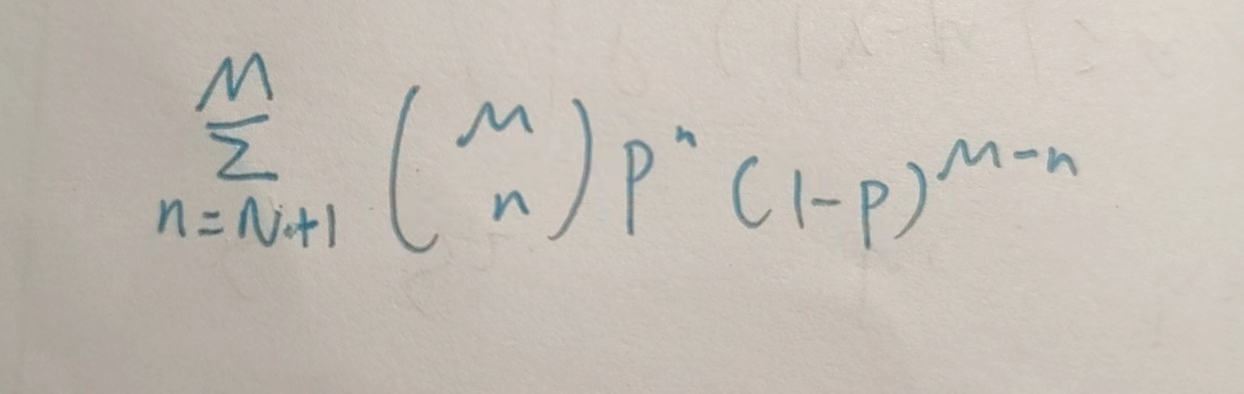 \sum_{n=N+1}^{M} \binom{M}{n} p^n (1-p)^{M-n}